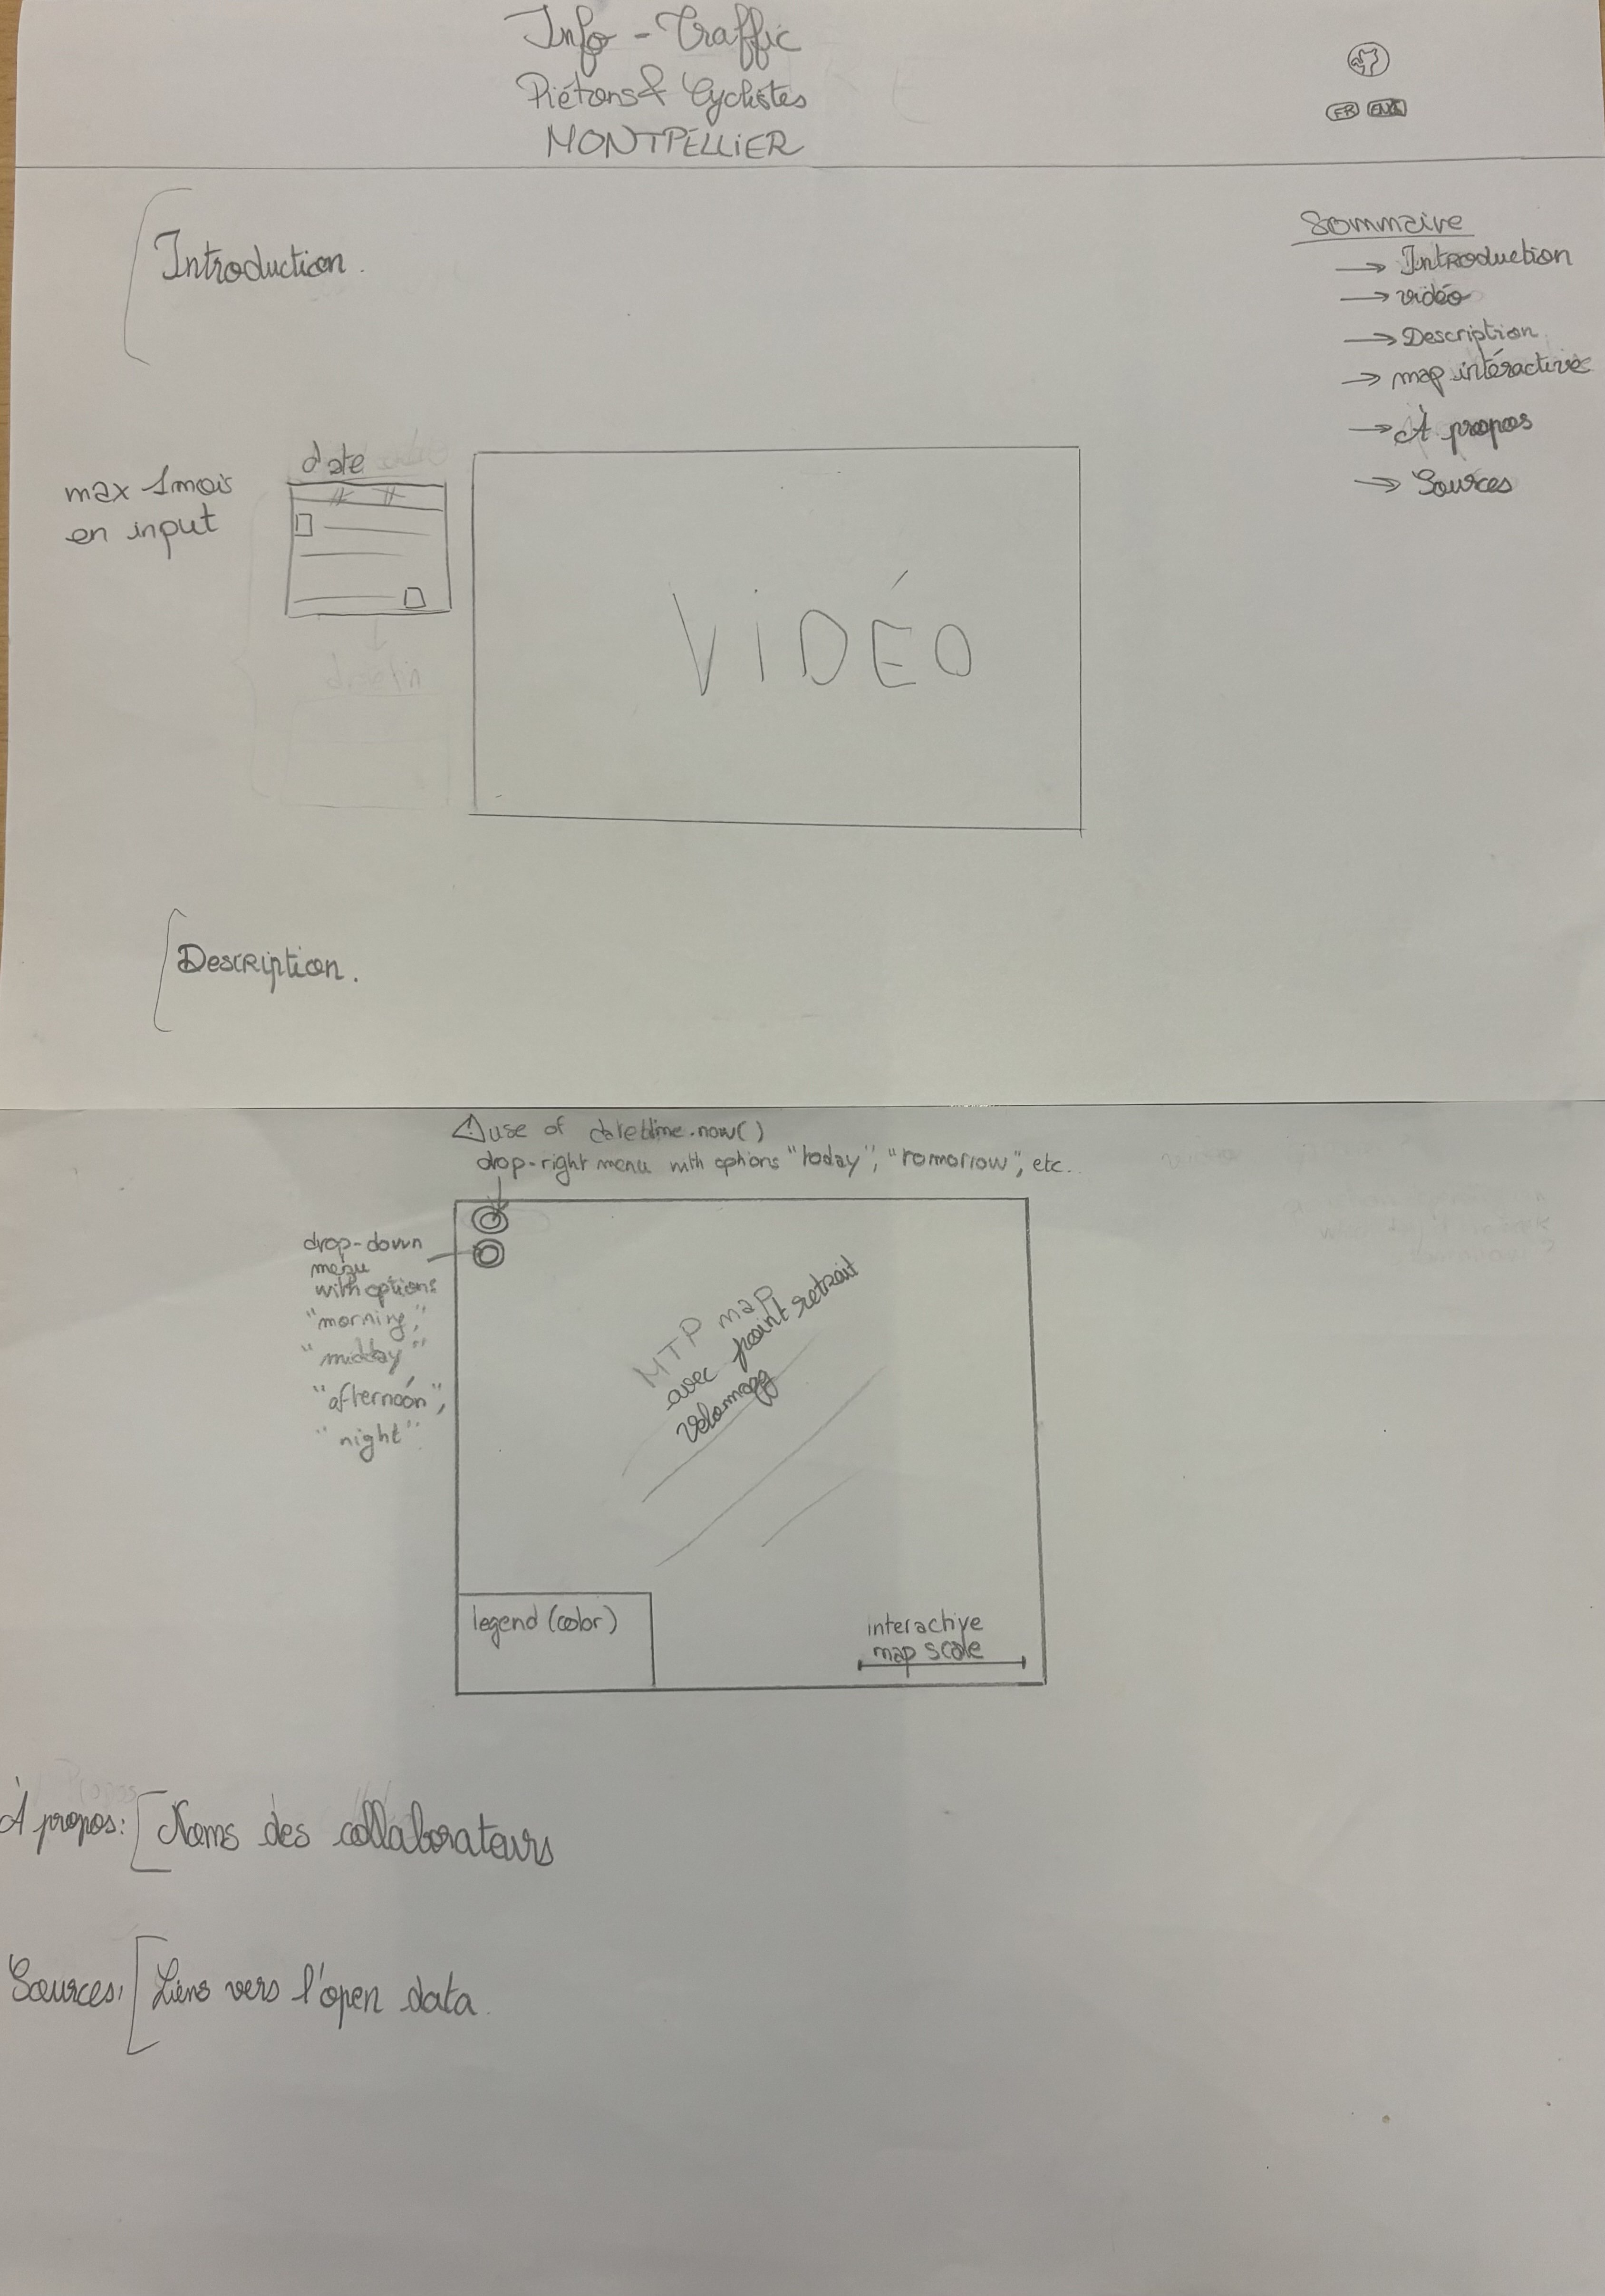 Info - Traffic
Piétons & Cyclistes
MONTPELLIER
FR ENG
Introduction.
Sommaire
→ Introduction
→ vidéo
→ Description
→ map intéractive
→ À propos
→ Sources
max 1 mois
en input
date
VIDÉO
Description.
⚠ use of datetime.now()
drop-right menu with options "today", "tomorrow", etc..
drop-down
menu
with options
"morning,"
"midday"
"afternoon",
"night"
MTP map
avec point retrait
Velomagg
legend (color)
interactive
map scale
À propos: [Noms des collaborateurs
Sources: [Liens vers l'open data.